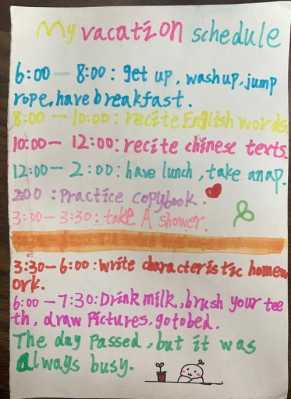 My vacation schedule
6:00 — 8:00: get up, wash up, jump
rope, have breakfast.
8:00 — 10:00: recite English words
10:00 — 12:00: recite chinese texts.
12:00 — 2:00: have lunch, take a nap.
2:00: Practice copybook.
3:00 — 3:30: take A shower.
3:30 — 6:00: write characteristic homew
ork.
6:00 — 7:30: Drink milk, brush your tee
th, draw Pictures, go to bed.
The day passed, but it was
always busy.